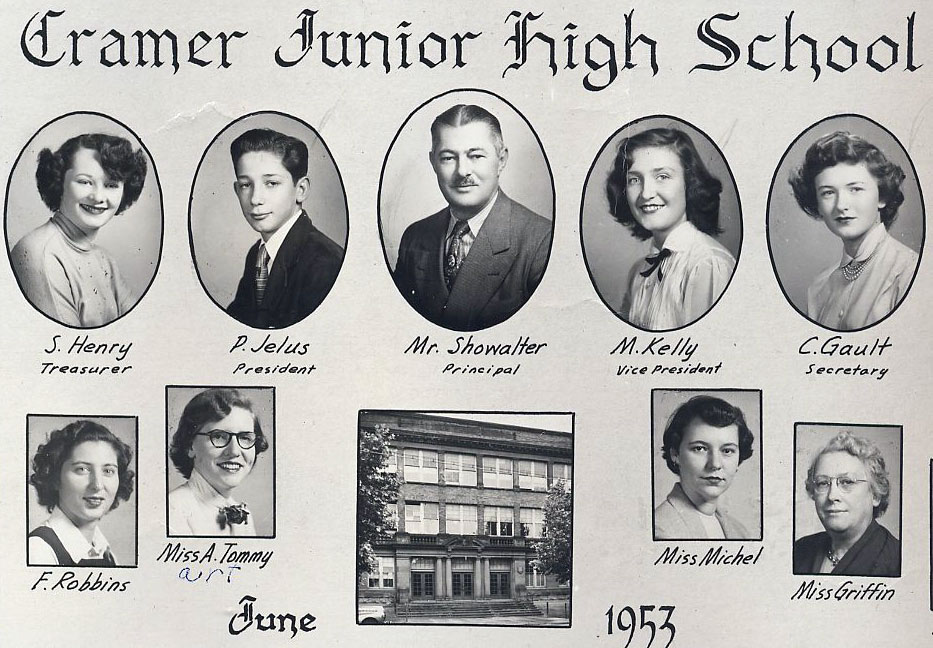 Cramer Junior High School
S. Henry
Treasurer
P. Jelus
President
Mr. Showalter
Principal
M. Kelly
Vice President
C. Gault
Secretary
F. Robbins
Miss A. Tommy
art
Miss Michel
Miss Griffin
June 1953